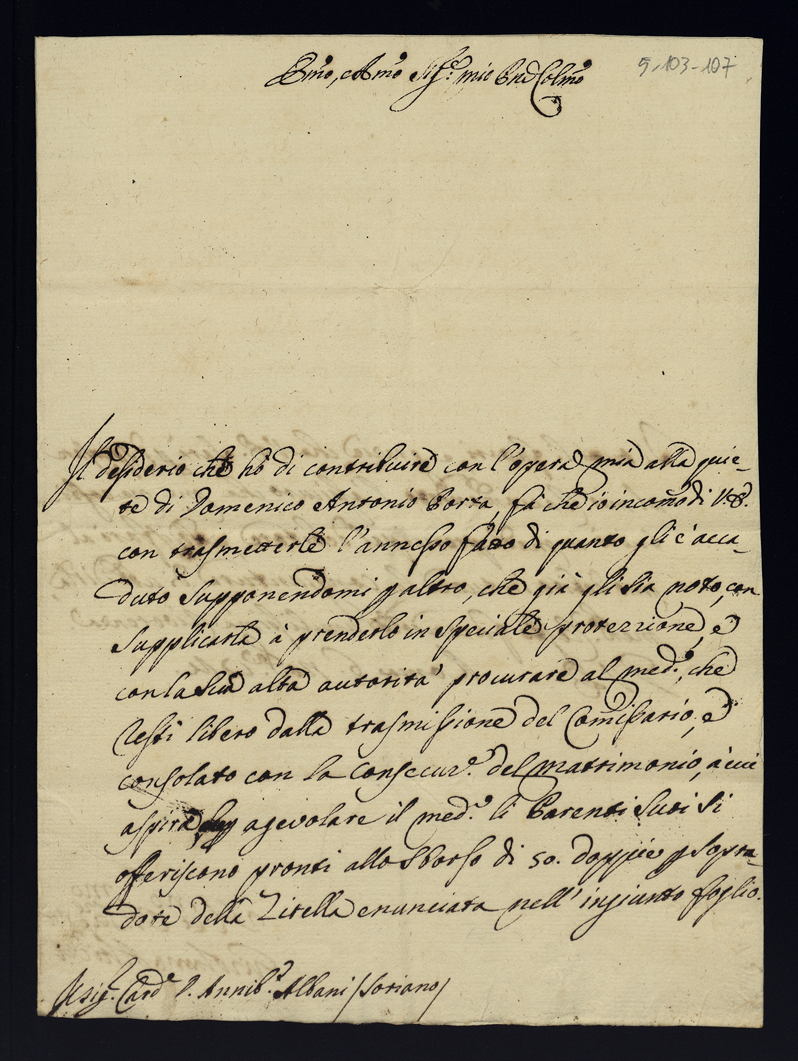 Emo, e Rmo Sigr. mio Pne Colmo
5-103-107
Il desiderio che hò di contribuire con l'opera mia alla quie-
te di Domenico Antonio Porta, fà che io incomodi V.E.
con trasmetterle l'annesso fatto di quanto gli è acca-
duto supponendomi p altro, che già gli sia noto, con
supplicarla à prenderlo in speciale protezzione, e
con la sua alta autorità procurare al med.o, che
resti libero dalla trasmissione del Comissario, e
consolato con la consecuz.e del matrimonio, à cui
aspira agevolare il med.o li Parenti suoi si
offeriscono pronti allo sborso di 50. doppie p sopra-
dote della Zitella enunciata nell' ingiunto foglio.
Sig.r Card.e Annib.e Albani /Soriano/